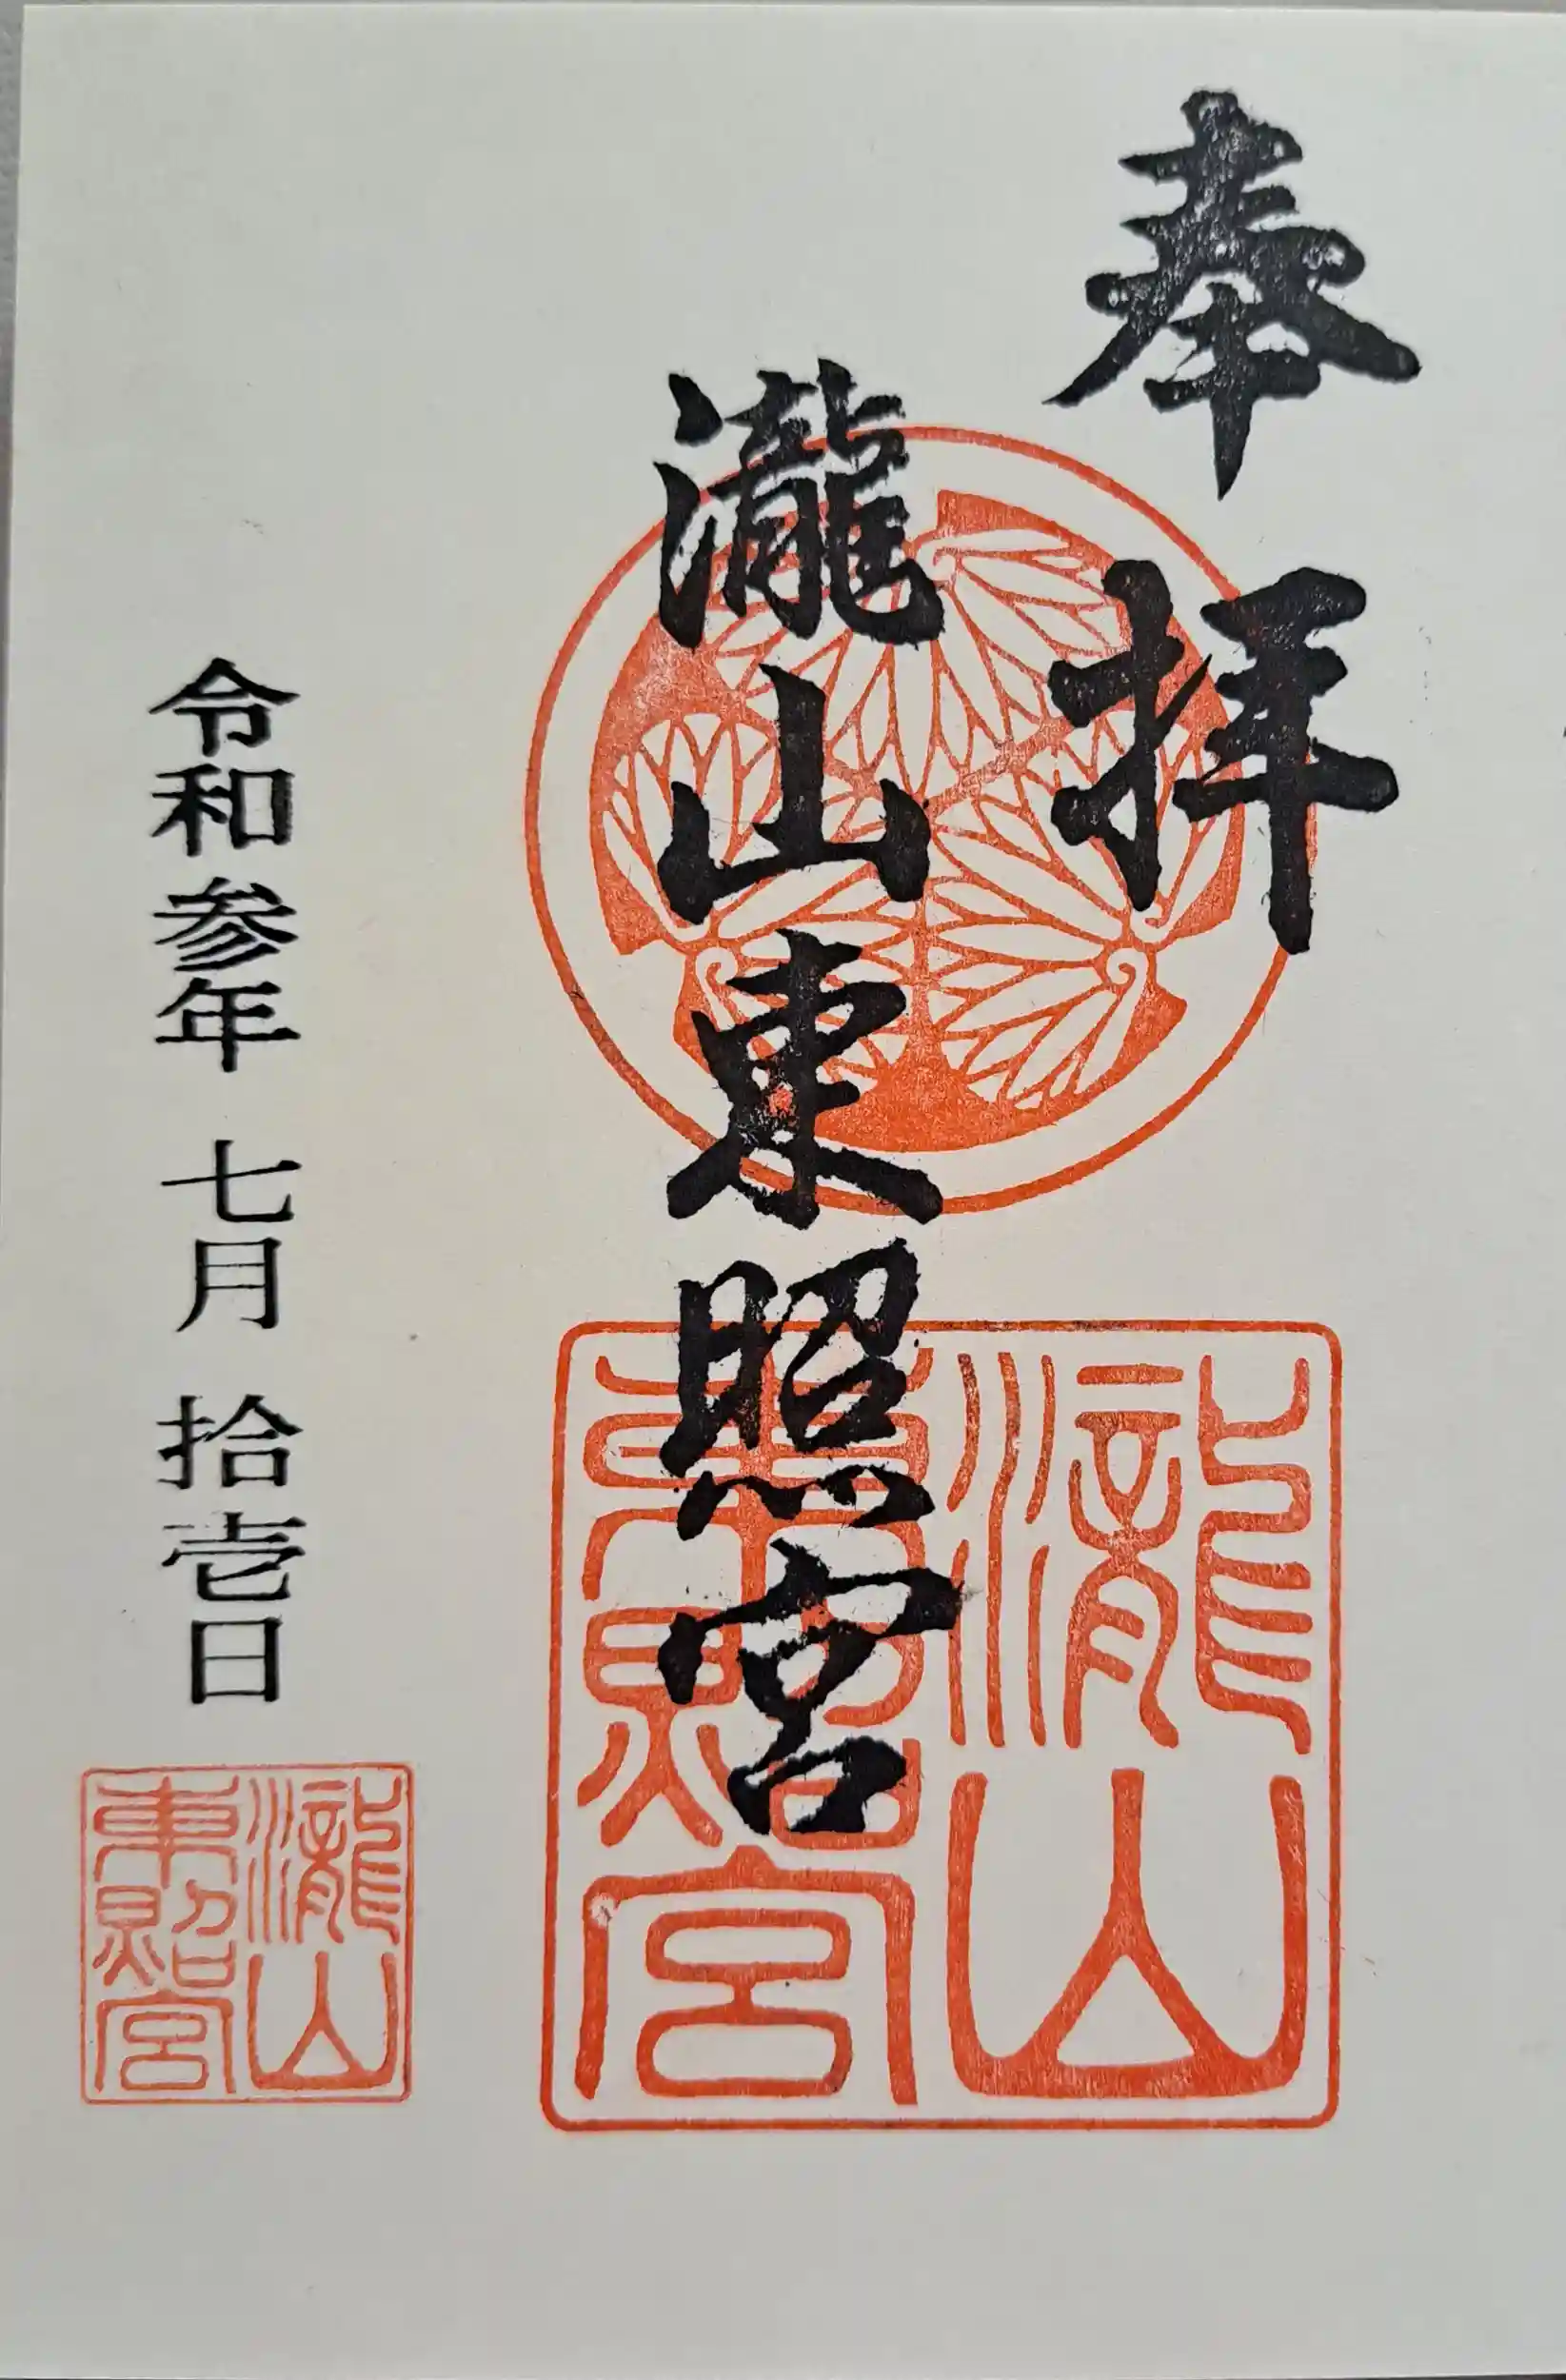 奉拝
瀧山東照宮
令和参年 七月 拾壱日
瀧山
東照宮
瀧山
東照宮